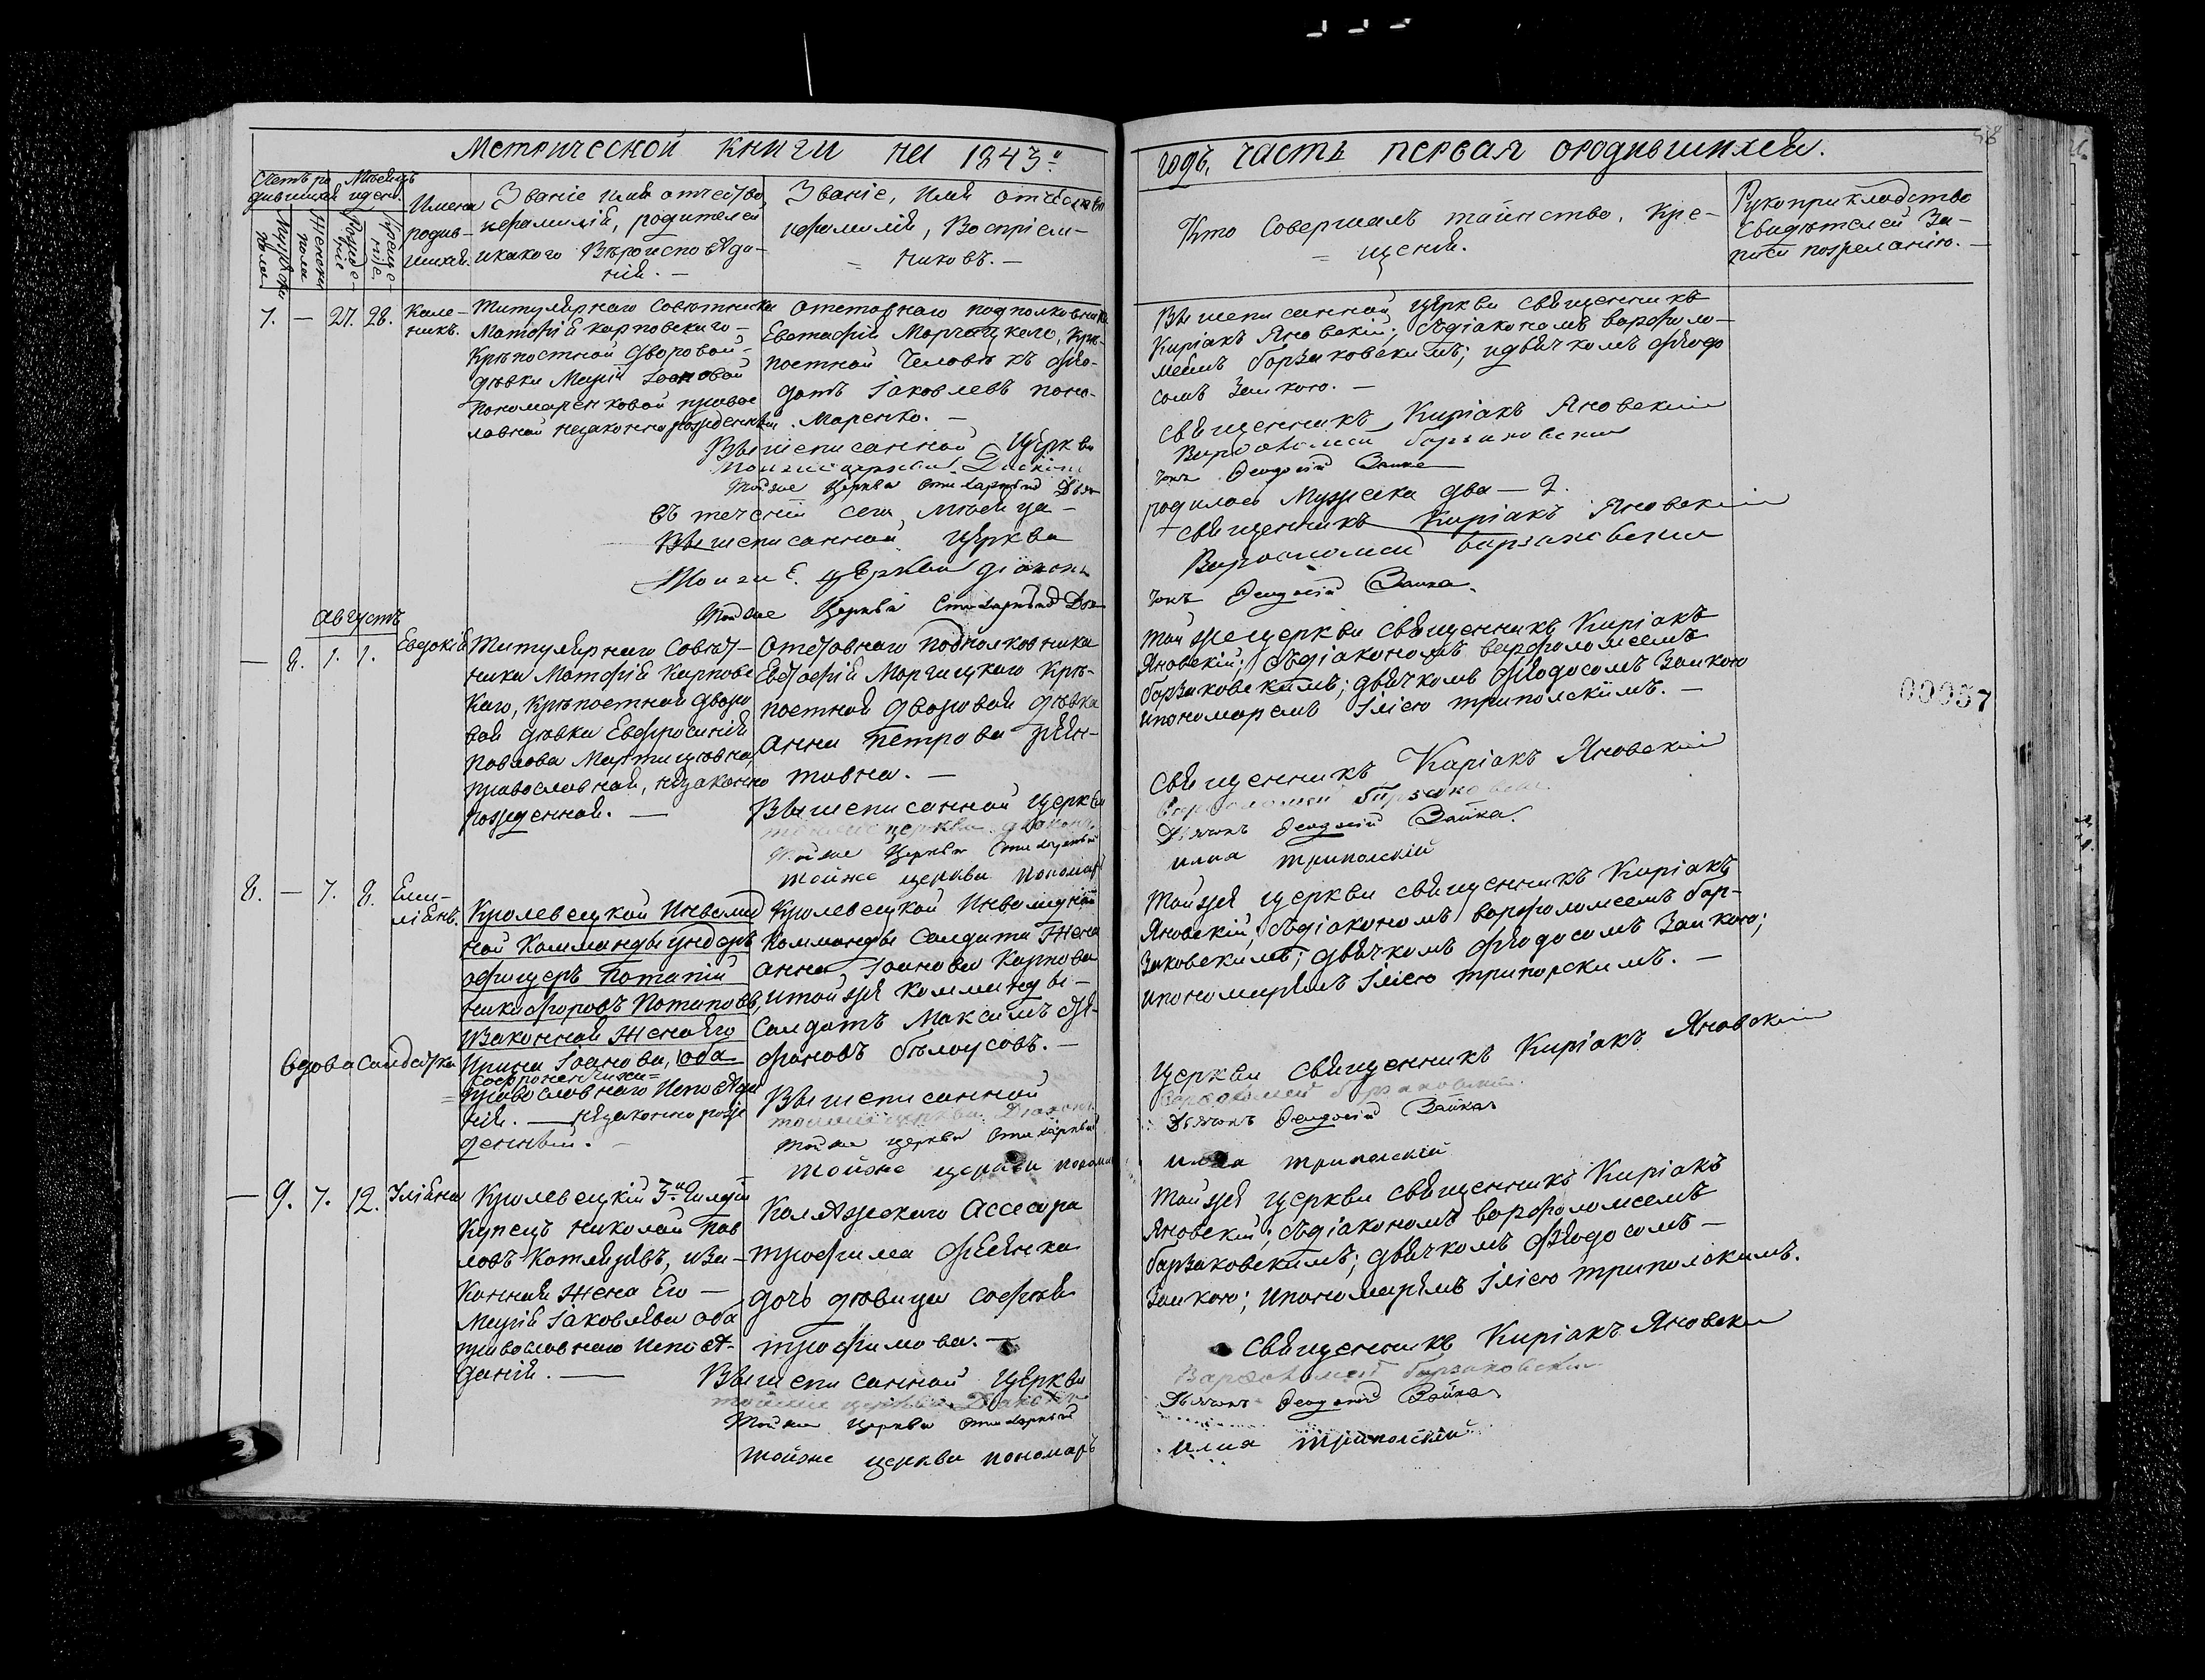 Метрической книги на 1843й
годъ, часть первая ородившихся.
Счетъ ро
дившихся
Мужеска
пола
Женска
пола
Месяцъ
и день.
Рожде-
ніе
Креще-
ніе.
Имена
родив-
шихся.
Званіе имя отчество,
ифамилія, родителей
икакого Вѣроисповѣда-
нія. —
Званіе, Имя отчество
ифамилія, Воспріем-
никовъ. —
Кто Совершалъ таинство, Кре-
щенія.
Рукоприкладство
Свидѣтелей За-
писи пожеланію. —
7. — 27. 28.
Кале-
никъ.
Титулярнаго Совѣтника
Матфія Карповскаго —
Крѣпостной Дворовой —
дѣвки Маріи Іоановой
Пономаренковой правос
лавной незаконно рожденный
Отставнаго подполковника
Евстафія Марчицкаго, Крѣ-
постной Человѣкъ Фео-
дотъ Іаковлевъ Поно-
маренко. —
Вышеписанной Церкви
Тойже церкви Діаконъ
Тойже Церкви Стихарный Дья-
въ теченіи сего месяца —
Вышеписанной Церкви
Тойже церкви діаконъ
Тойже Церкви Стихарный Дья-
Вышеписанной церкви священникъ
Киріакъ Яновскій; Съдіакономъ варфоло-
меемъ борзаковскимъ; идьячкомъ феодо
сомъ Заикою. —
священникъ Киріакъ Яновскій
Варфоломей борзаковскій
чокъ Феодосій Заика
родилось Мужеска два — 2.
священникъ Киріакъ Яновскій
Варфоломей борзаковскій
чокъ Феодосій Заика.
Августъ
— 8. 1. 1.
Евдокія
Титулярнаго Совѣт-
ника Матфія Карповс
Каго, Крѣпостной дворо
вой дѣвки Евфросиніи
Павлова Мартищовна
православной, незаконно
рожденной. —
Отставнаго подполковника
Евстафія Марчицкаго Крѣ-
постной дворовой дѣвка
Анна Петрова
товна. —
Вышеписанной Церкви
тойже церкви діаконъ
Тойже Церкви Стихарный
тойже церкви пономарь
Той же церкви священникъ Киріакъ
Яновскій; Съдіакономъ варфоломеемъ
борзаковскимъ; дьячкомъ феодосомъ Заикою
ипономаремъ Іліею триполскимъ. —
Священникъ Киріакъ Яновскій
Варфоломей борзаковскій
Дьячокъ Феодосій Заика.
илиа триполскій
8. — 7. 8.
Еми-
ліянъ.
Кролевецкой Инвалид
ной Комманды ундеръ
офицеръ Потапій
Никифоровъ Потаповъ,
иЗаконная Жена Его
Ирина Іоанова, оба
вдова Салдатка
Православнаго Исповѣда
нія. — незаконно рож
денный. —
Кролевецкой Инвалидной
Комманды Салдата Жена
Анна Іоанова Карпова
итойже комманды —
Салдатъ Максимъ
фановъ бѣлоусовъ. —
Вышеписанной
тойже церкви Діаконъ
Тойже церкви Стихарный
тойже церкви понома
Тойже церкви священникъ Киріакъ
Яновскій, Съдіакономъ варфоломеемъ бор-
заковскимъ; дьячкомъ феодосомъ Заикою;
ипономаремъ Іліею трипорскимъ. —
Церкви священникъ Киріакъ Яновскій
Варфоломей борзаковскій.
Дьячокъ Феодосій Заика
илиа триполскій
— 9. 7. 12.
Іліяна
Кролевецкій 3й Гилдіи
Купецъ Николай Пав
ловъ Котляровъ, иЗа-
Конная Жена Его —
Марія Іаковлева оба
православнаго Исповѣ-
данія. —
Коллежскаго Ассесора
Трофима
дочь дѣвица Софія
Трофимова. —
Вышеписанной Церкви
тойже церкви Діаконъ
Тойже Церкви Стихарный
тойже церкви пономарь
Тойже церкви священникъ Киріакъ
Яновскій; Съдіакономъ варфоломеемъ
борзаковскимъ; дьячкомъ феодосомъ —
Заикою; ипономаремъ Іліею триполскимъ.
Священникъ Киріакъ Яновскій
Варфоломей борзаковскій
Дьячокъ Феодосій Заика
илиа триполскій
00057